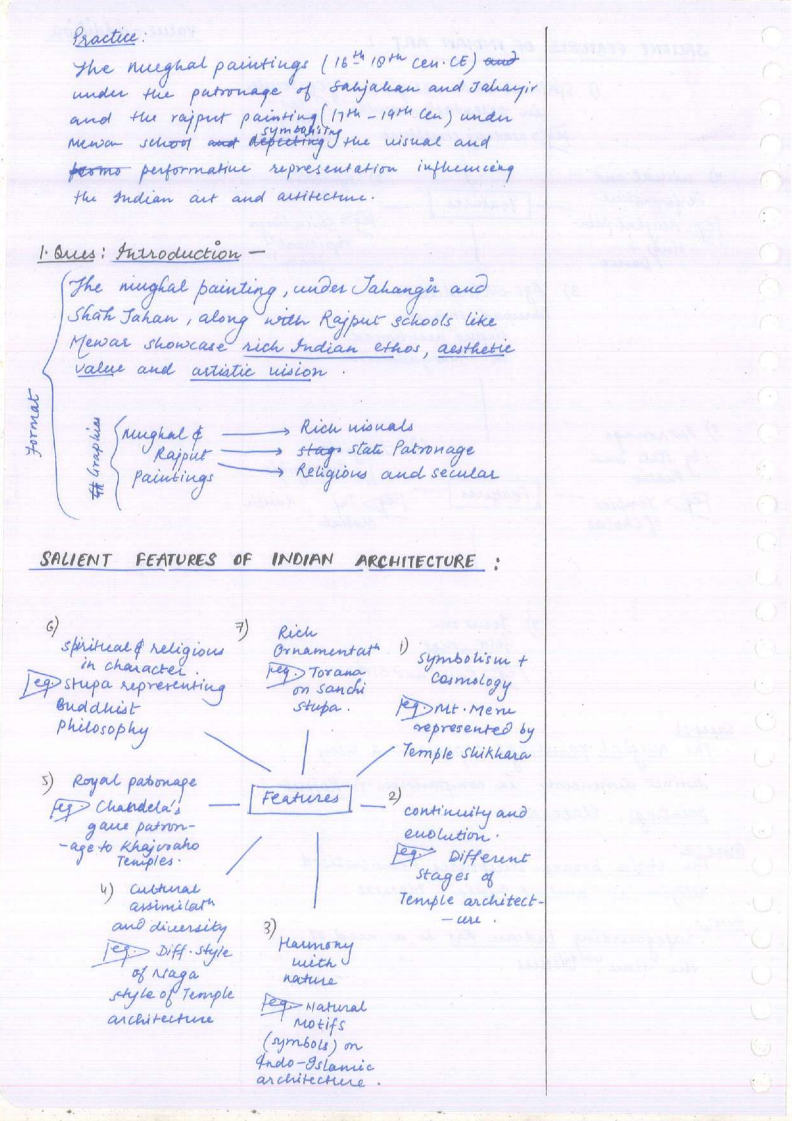 Practice:
The mughal paintings (16th 18th Cen. CE) and
under the patronage of Sahjahan and Jahangir
and the rajput painting (17th – 19th Cen) under
symbolising
Mewar school and depicting the visual and
performative representation influencing
the Indian art and artitecture.
1. Ques: Introduction —
The mughal painting, under Jahangir and
Shah Jahan, along with Rajput schools like
Mewar showcase rich Indian ethos, aesthetic
value and artistic vision.
Format
Graphics
Mughal & → Rich visuals
Rajput → stags state Patronage
Paintings → Religious and secular
SALIENT FEATURES OF INDIAN ARCHITECTURE :
6)
Spiritual & religious
in character.
eg. Stupa representing
Buddhist
Philosophy
7)
Rich
Ornamentatn
eg. Torana
on Sanchi
stupa.
1)
Symbolism +
Cosmology
eg. Mt. Meru
represented by
Temple Shikhara
5) Royal patronage
eg Chandela's
gave patron-
-age to Khajuraho
Temples.
Features
2)
continuity and
evolution.
eg. Different
stages of
Temple architect-
-ure.
4) Cultural
assimilatn
and diversity
eg. Diff. style
of Naga
style of Temple
architecture
3)
Harmony
with
nature
eg. Natural
Motifs
(symbols) on
Indo-Islamic
architecture.